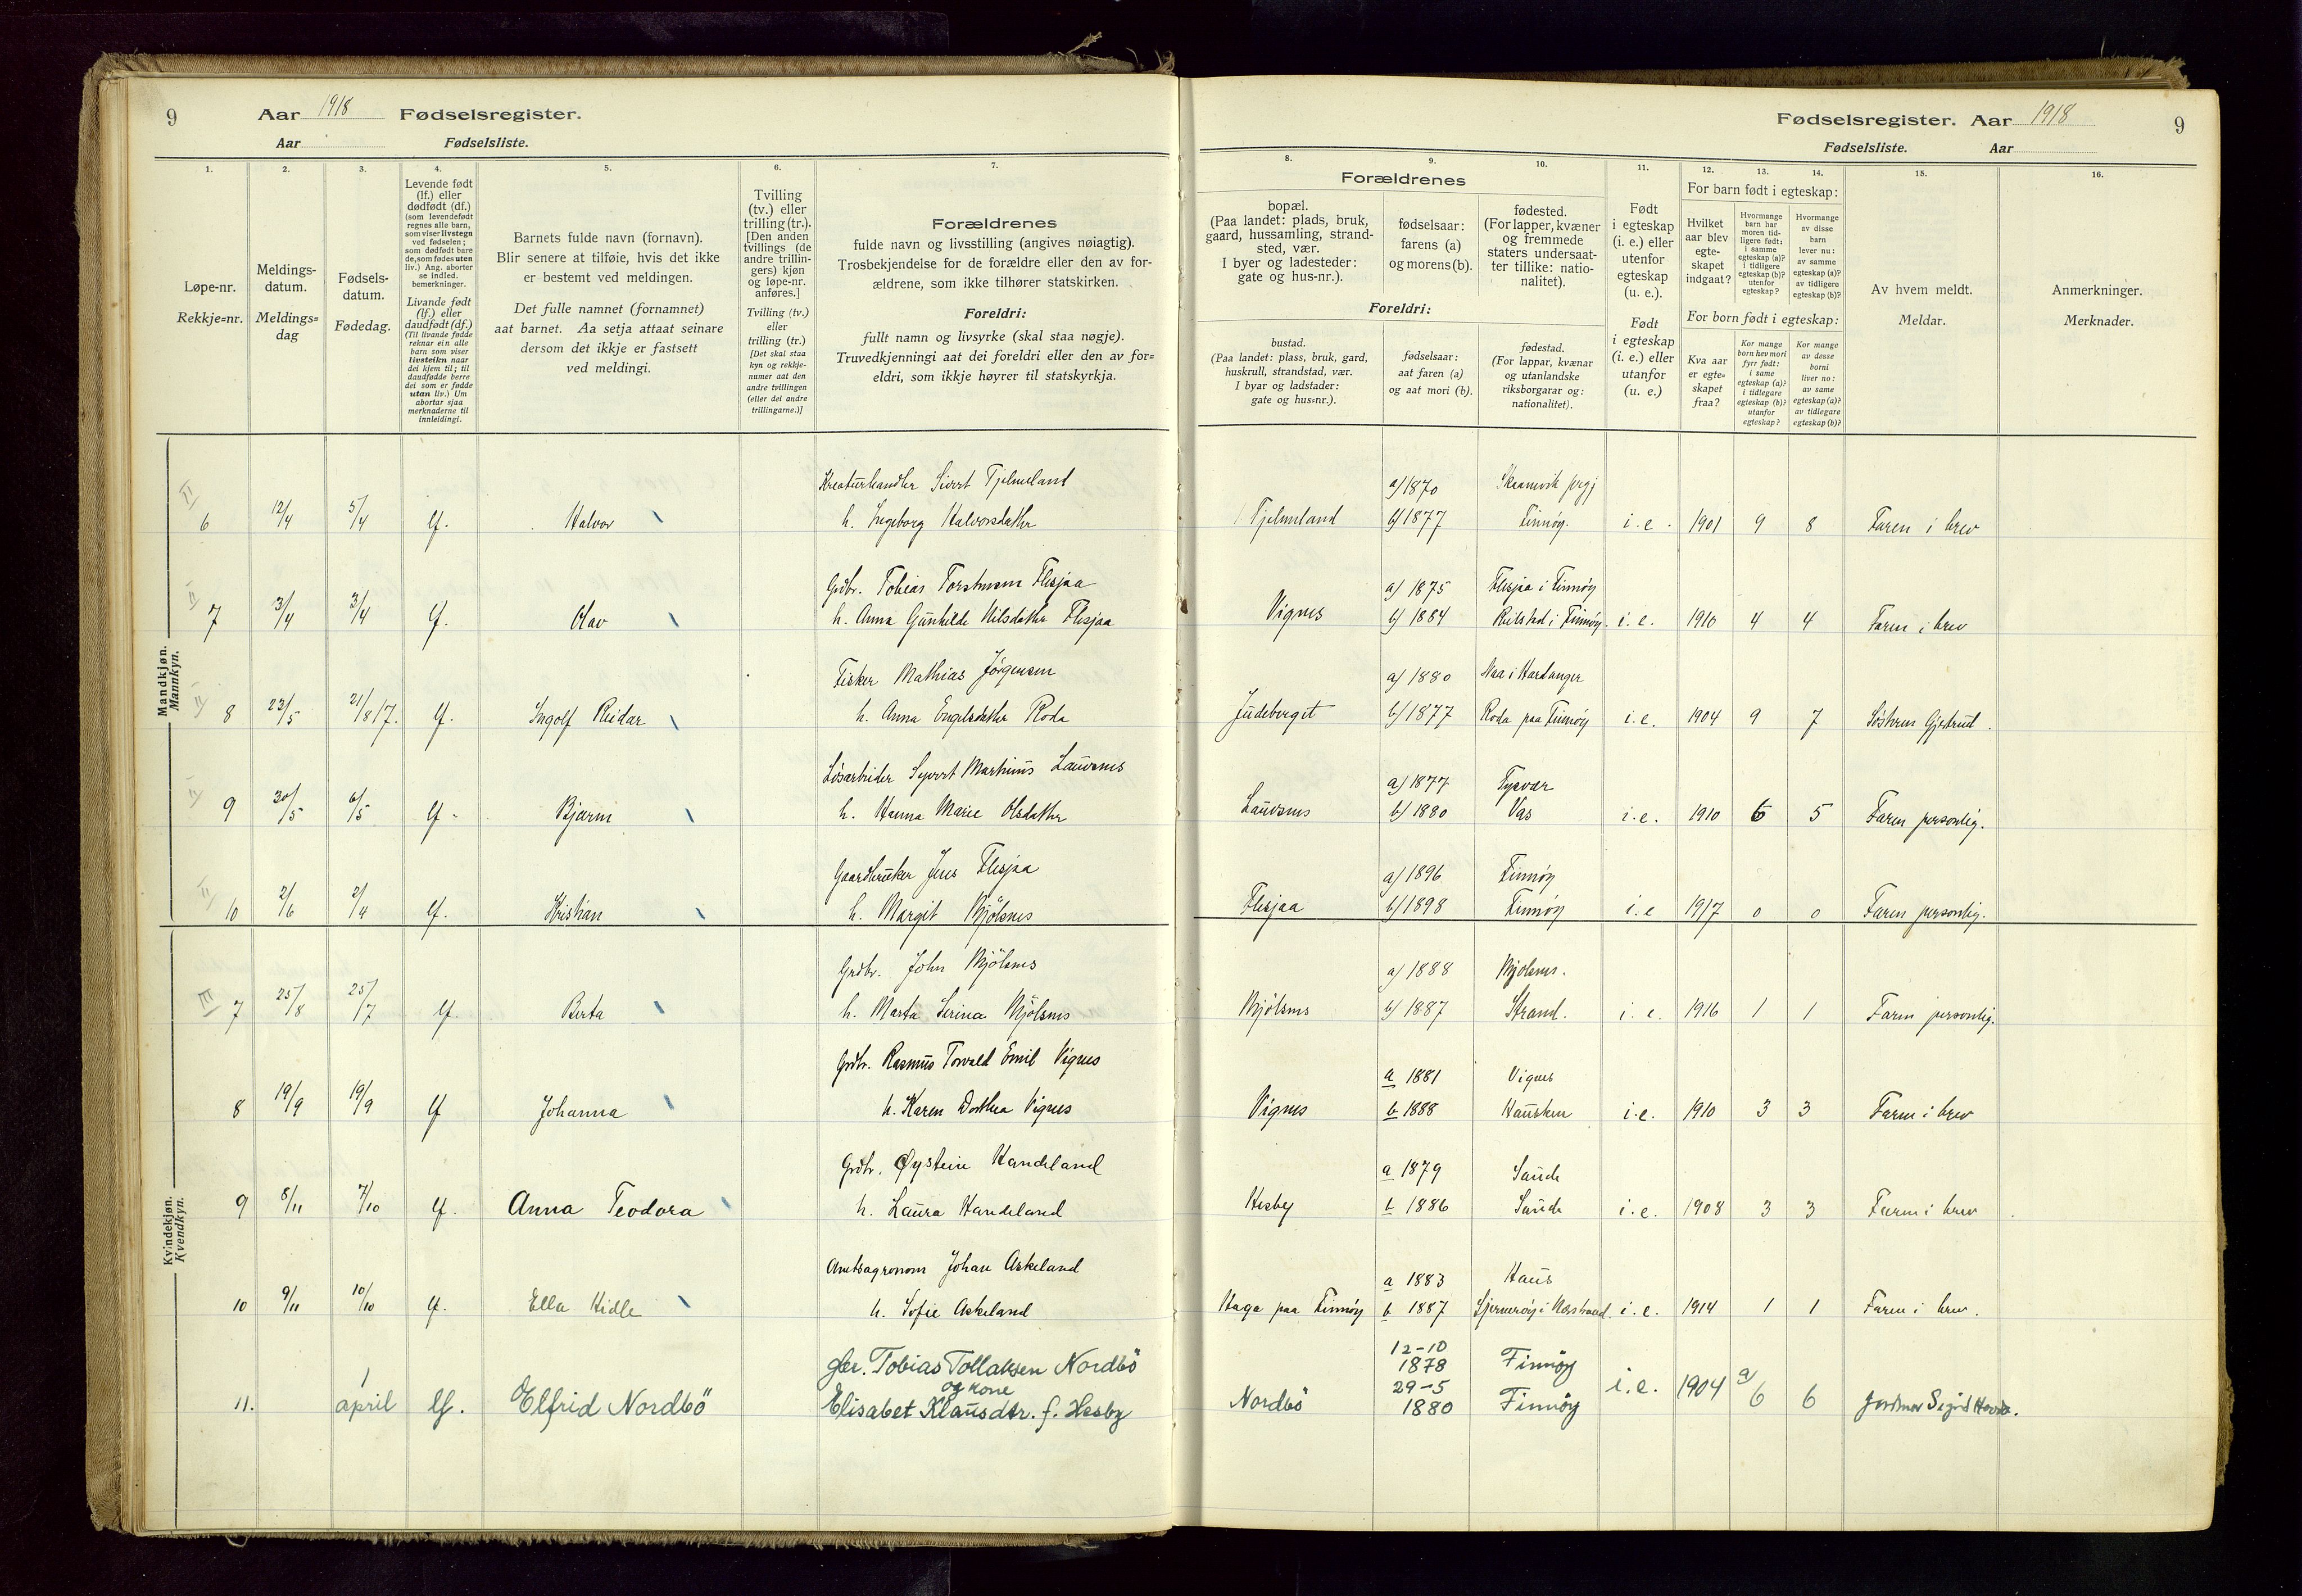 9 Aar 1918 Fødselsregister.
Aar Fødselsliste.
Fødselsregister. Aar 1918 9
Fødselsliste. Aar
1. 2. 3. 4. 5. 6. 7. 8. 9. 10. 11. 12. 13. 14. 15. 16.
Løpe-nr.
Rekkje=nr.
Meldings-
datum.
Meldings=
dag
Fødsels-
datum.
Fødedag.
Levende født
(lf.) eller
dødfødt (df.)
(som levendefødt
regnes alle barn,
som viser livstegn
ved fødselen;
som dødfødt bare
de, som fødes uten
liv.) Ang. aborter
se indled.
bemerkninger.
Livande født
(lf.) eller
daudfødt (df.)
(Til livande fødde
reknar ein alle
barn som viser
livsteikn naar
dei kjem til; til
daudfødde berre
dei som er fødde
utan liv.) Um
abortar sjaa
merknaderne til
innleidingi.
Barnets fulde navn (fornavn).
Blir senere at tilføie, hvis det ikke
er bestemt ved meldingen.
Det fulle namnet (fornamnet)
aat barnet. Aa setja attaat seinare
dersom det ikkje er fastsett
ved meldingi.
Tvilling
(tv.) eller
trilling (tr.).
[Den anden
tvillings (de
andre trillin-
gers) kjøn
og løpe-nr.
anføres.]
Tvilling (tv.)
eller
trilling (tr.)
[Det skal staa
kyn og rekkje-
nummer aat den
andre tvillingen
(eller dei andre
trillingarne.)]
Forældrenes
fulde navn og livsstilling (angives nøiagtig).
Trosbekjendelse for de forældre eller den av for-
ældrene, som ikke tilhører statskirken.
Foreldri:
fullt namn og livsyrke (skal staa nøgje).
Truvedkjenningi aat dei foreldri eller den av for=
eldri, som ikkje høyrer til statskyrkja.
Forældrenes
bopæl.
(Paa landet: plads, bruk,
gaard, hussamling, strand-
sted, vær.
I byer og ladesteder:
gate og hus-nr.).
fødselsaar:
farens (a)
og morens (b).
fødested.
(For lapper, kvæner
og fremmede
staters undersaat-
ter tillike: natio-
nalitet).
Foreldri:
bustad.
(Paa landet: plass, bruk, gard,
huskrull, strandstad, vær.
I byar og ladstader:
gate og hus=nr.).
fødselsaar:
aat faren (a)
og aat mori (b).
fødestad.
(For lappar, kvænar
og utanlandske
riksborgarar og:
nationalitet).
Født
i egteskap
(i. e.) eller
utenfor
egteskap
(u. e.).
Født
i egteskap
(i. e.) eller
utanfor
(u. e.)
For barn født i egteskap:
Hvilket
aar blev
egte-
skapet
indgaat?
Hvormange
barn har
moren tid-
ligere født:
i samme
egteskap (a)?
i tidligere
egteskap (b)?
utenfor
egteskap?
Hvormange
av disse
barn
lever nu:
av samme
egteskap (a)?
av tidligere
egteskap (b)?
For born født i egteskap:
Kva aar
er egte=
skapet
fraa?
Kor mange
born hev mori
fyrr født:
i same
egteskap (a)?
i tidlegare
egteskap (b)?
utanfor
egteskap?
Kor mange
av desse
borni
liver no:
av same
egteskap (a)?
av tidlegare
egteskap (b)?
Av hvem meldt.
Meldar.
Anmerkninger.
Merknader.
Mandkjøn.
Mannkyn.
Kreaturhandler Sivert Tjelmeland a) 1870 Skaanevik prgj
II 6 12/4 5/4 lf. Halvor h. Ingeborg Halvorsdatter Tjelmeland b) 1877 Finnöy. i. e. 1901 9 8 Faren i brev
Grdbr. Tobias Torstensen Flesjaa a) 1875 Flesjaa i Finnöy
II 7 3/4 3/4 lf. Olav h. Anna Gunhilde Nilsdatter Flesjaa Vignes b) 1884 Reilstad i Finnöy. i. e. 1910 4 4 Faren i brev
Fisker Mathias Jörgensen a) 1880 Naa i Hardanger
II 8 23/5 21/8 17. lf. Ingolf Reidar h. Anna Engelsdatter Roda Judeberget b) 1877 Roda paa Finnöy i. e. 1904 9 7 Söstren Gjertrud.
Lösarbeider Syvert Martinus Lauvsnes a) 1877 Tysvær
II 9 30/5 6/5 lf. Bjarne h. Hanna Marie Olsdatter Lauvsnes b) 1880 Vas i. e. 1910 6 5 Faren personlig.
Gaardbruker Jens Flesjaa a) 1896 Finnöy
II 10 2/6 2/4 lf. Kristian h. Margit Mjölsnes Flesjaa b) 1898 Finnöy i. e 1917 0 0 Faren personlig.
Kvindekjøn.
Kvendkyn.
Grdbr. John Mjölsnes a) 1888 Mjölsnes.
III 7 25/8 25/7 lf. Berta h. Marta Serina Mjölsnes Mjölsnes b) 1887 Strand. i. e. 1916 1 1 Faren personlig.
Grdbr. Rasmus Torvald Emil Vignes a 1881 Vignes
8 19/9 19/9 lf Johanna h. Karen Dorthea Vignes Vignes b 1888 Hausken i. e. 1910 3 3 Faren i brev
Grdbr. Øystein Handeland a 1879 Saude
9 8/11 7/10 lf. Anna Teodora h. Laura Handeland Hesby b 1886 Saude i. e. 1908 3 3 Faren i brev
Amtsagronom Johan Askeland a 1883 Haus
10 9/11 10/10 lf. Ella Hidle h. Sofie Askeland Haga paa Finnöy b 1887 Sjernaröy i Nerstrand. i. e. 1914 1 1 Faren i brev.
gbr. Tobias Tollaksen Nordbö 12-10 1878 Finnöy
og kone
11. 1 april lf. Elfrid Nordbö Elisabet Klausdtr. f. Hesby Nordbö 29-5 1880 Finnöy i. e. 1904 a/ 6 6 Jordmor Sigrid